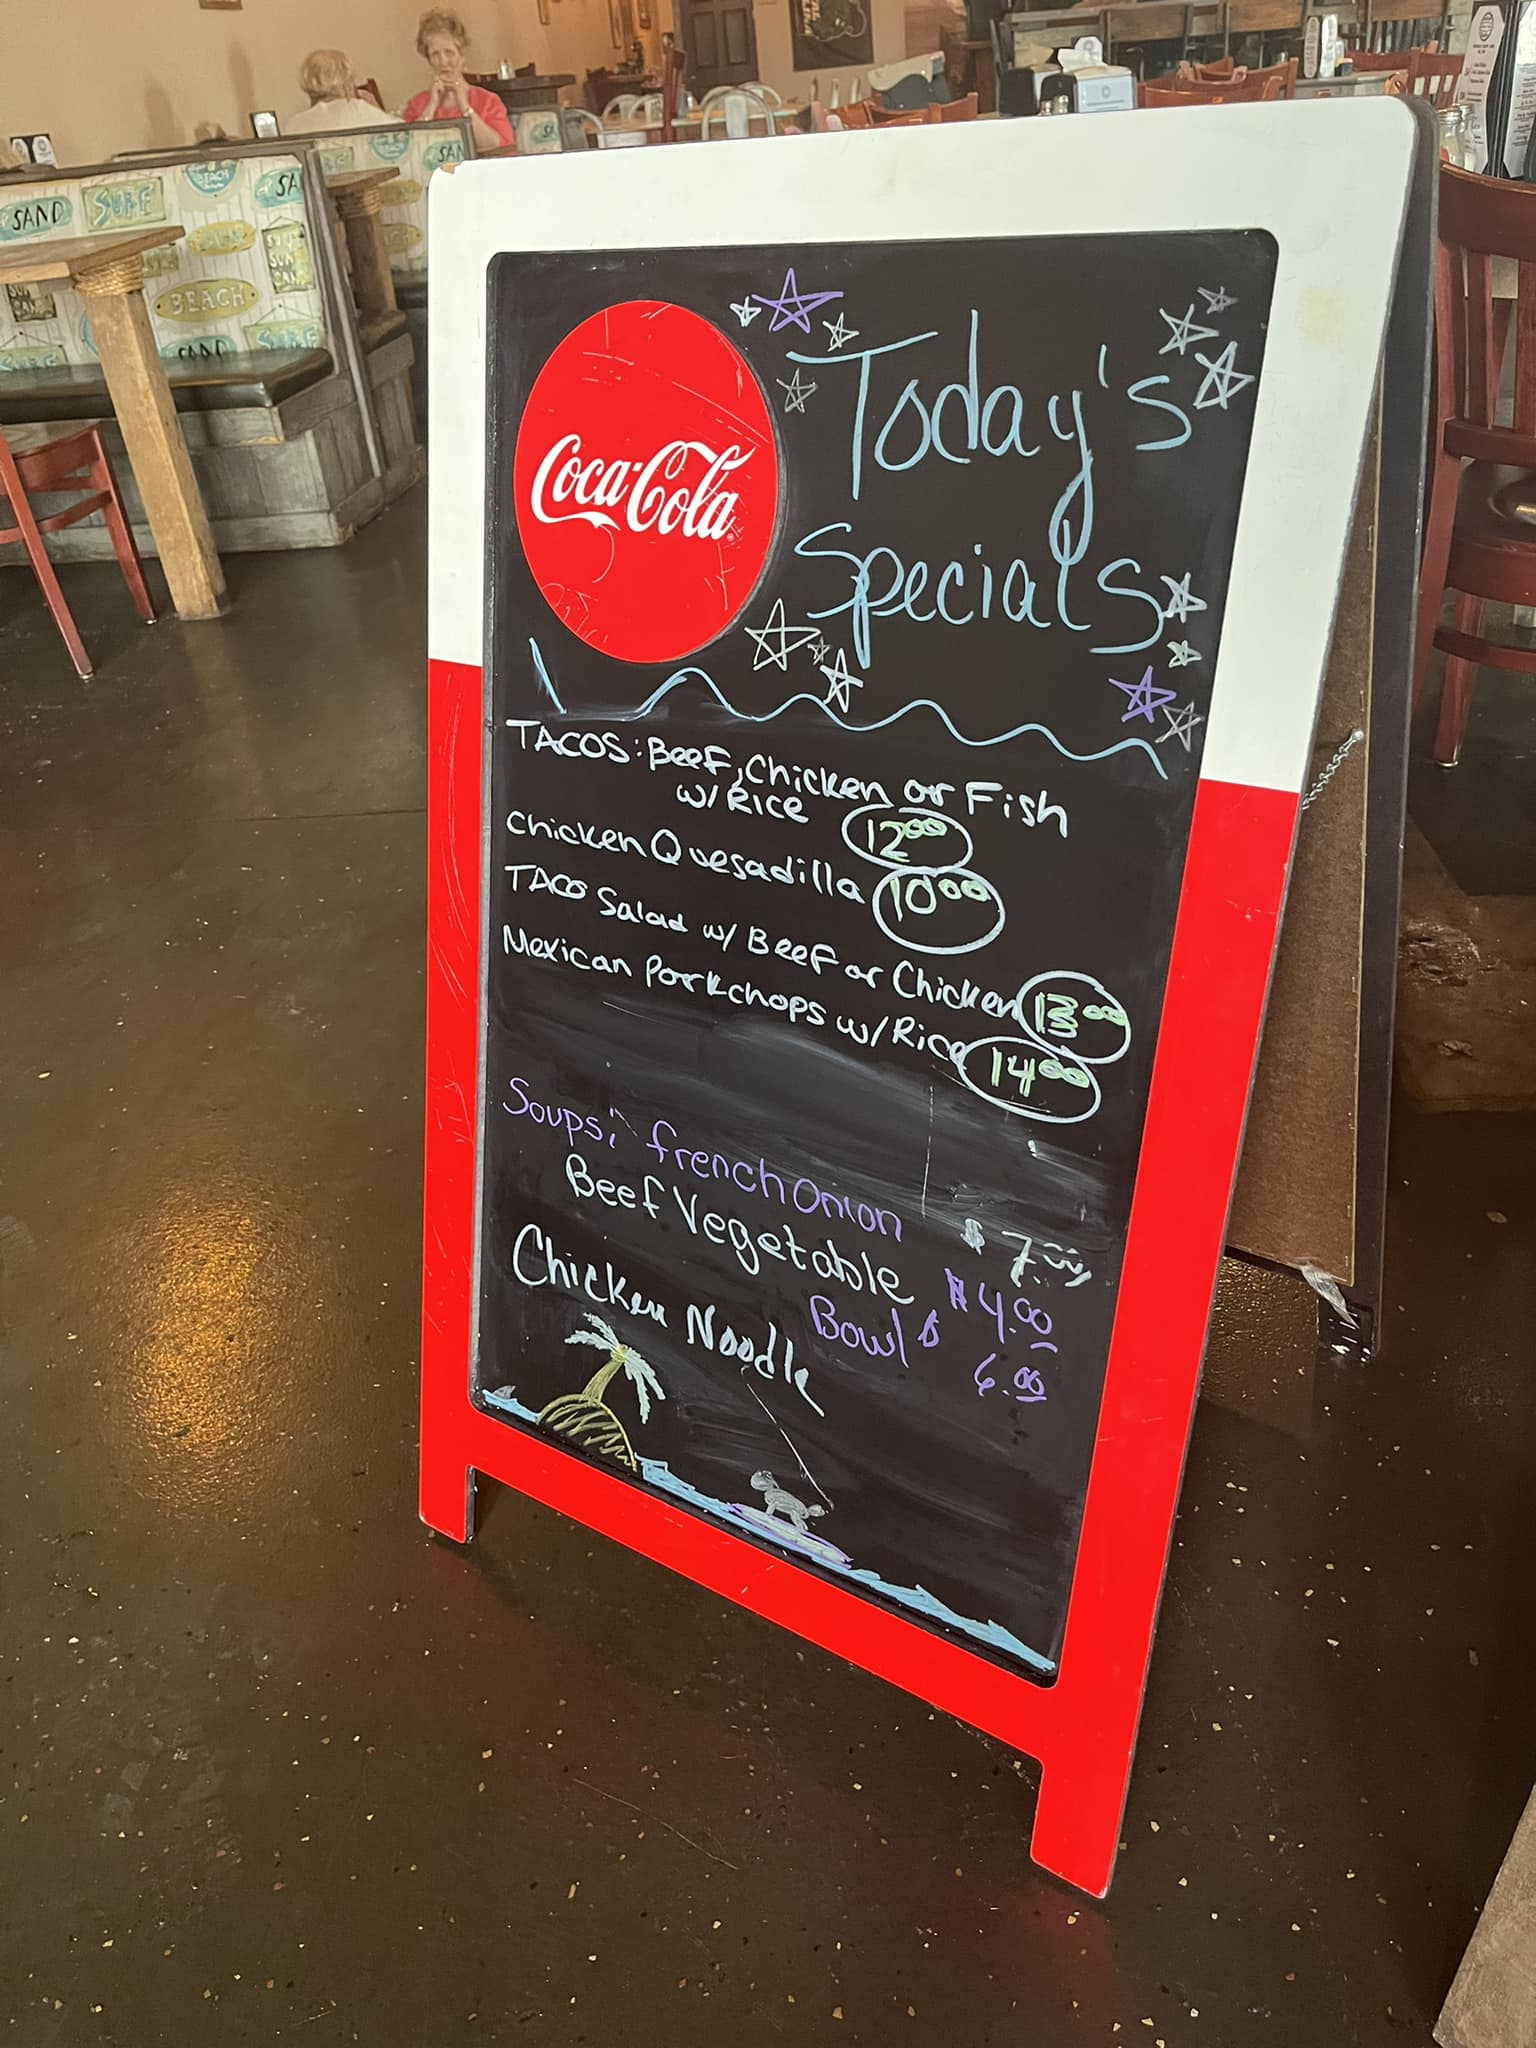 SAND
SURF
BEACH
SAND
SURF
Coca-Cola
Today's
Specials
TACOS: Beef, Chicken or Fish
w/ Rice 12.00
Chicken Quesadilla 10.00
TACO Salad w/ Beef or Chicken 13.00
Mexican Porkchops w/ Rice 14.00
Soups: french Onion $7.00
Beef Vegetable $4.00
Bowl $ 6.00
Chicken Noodle